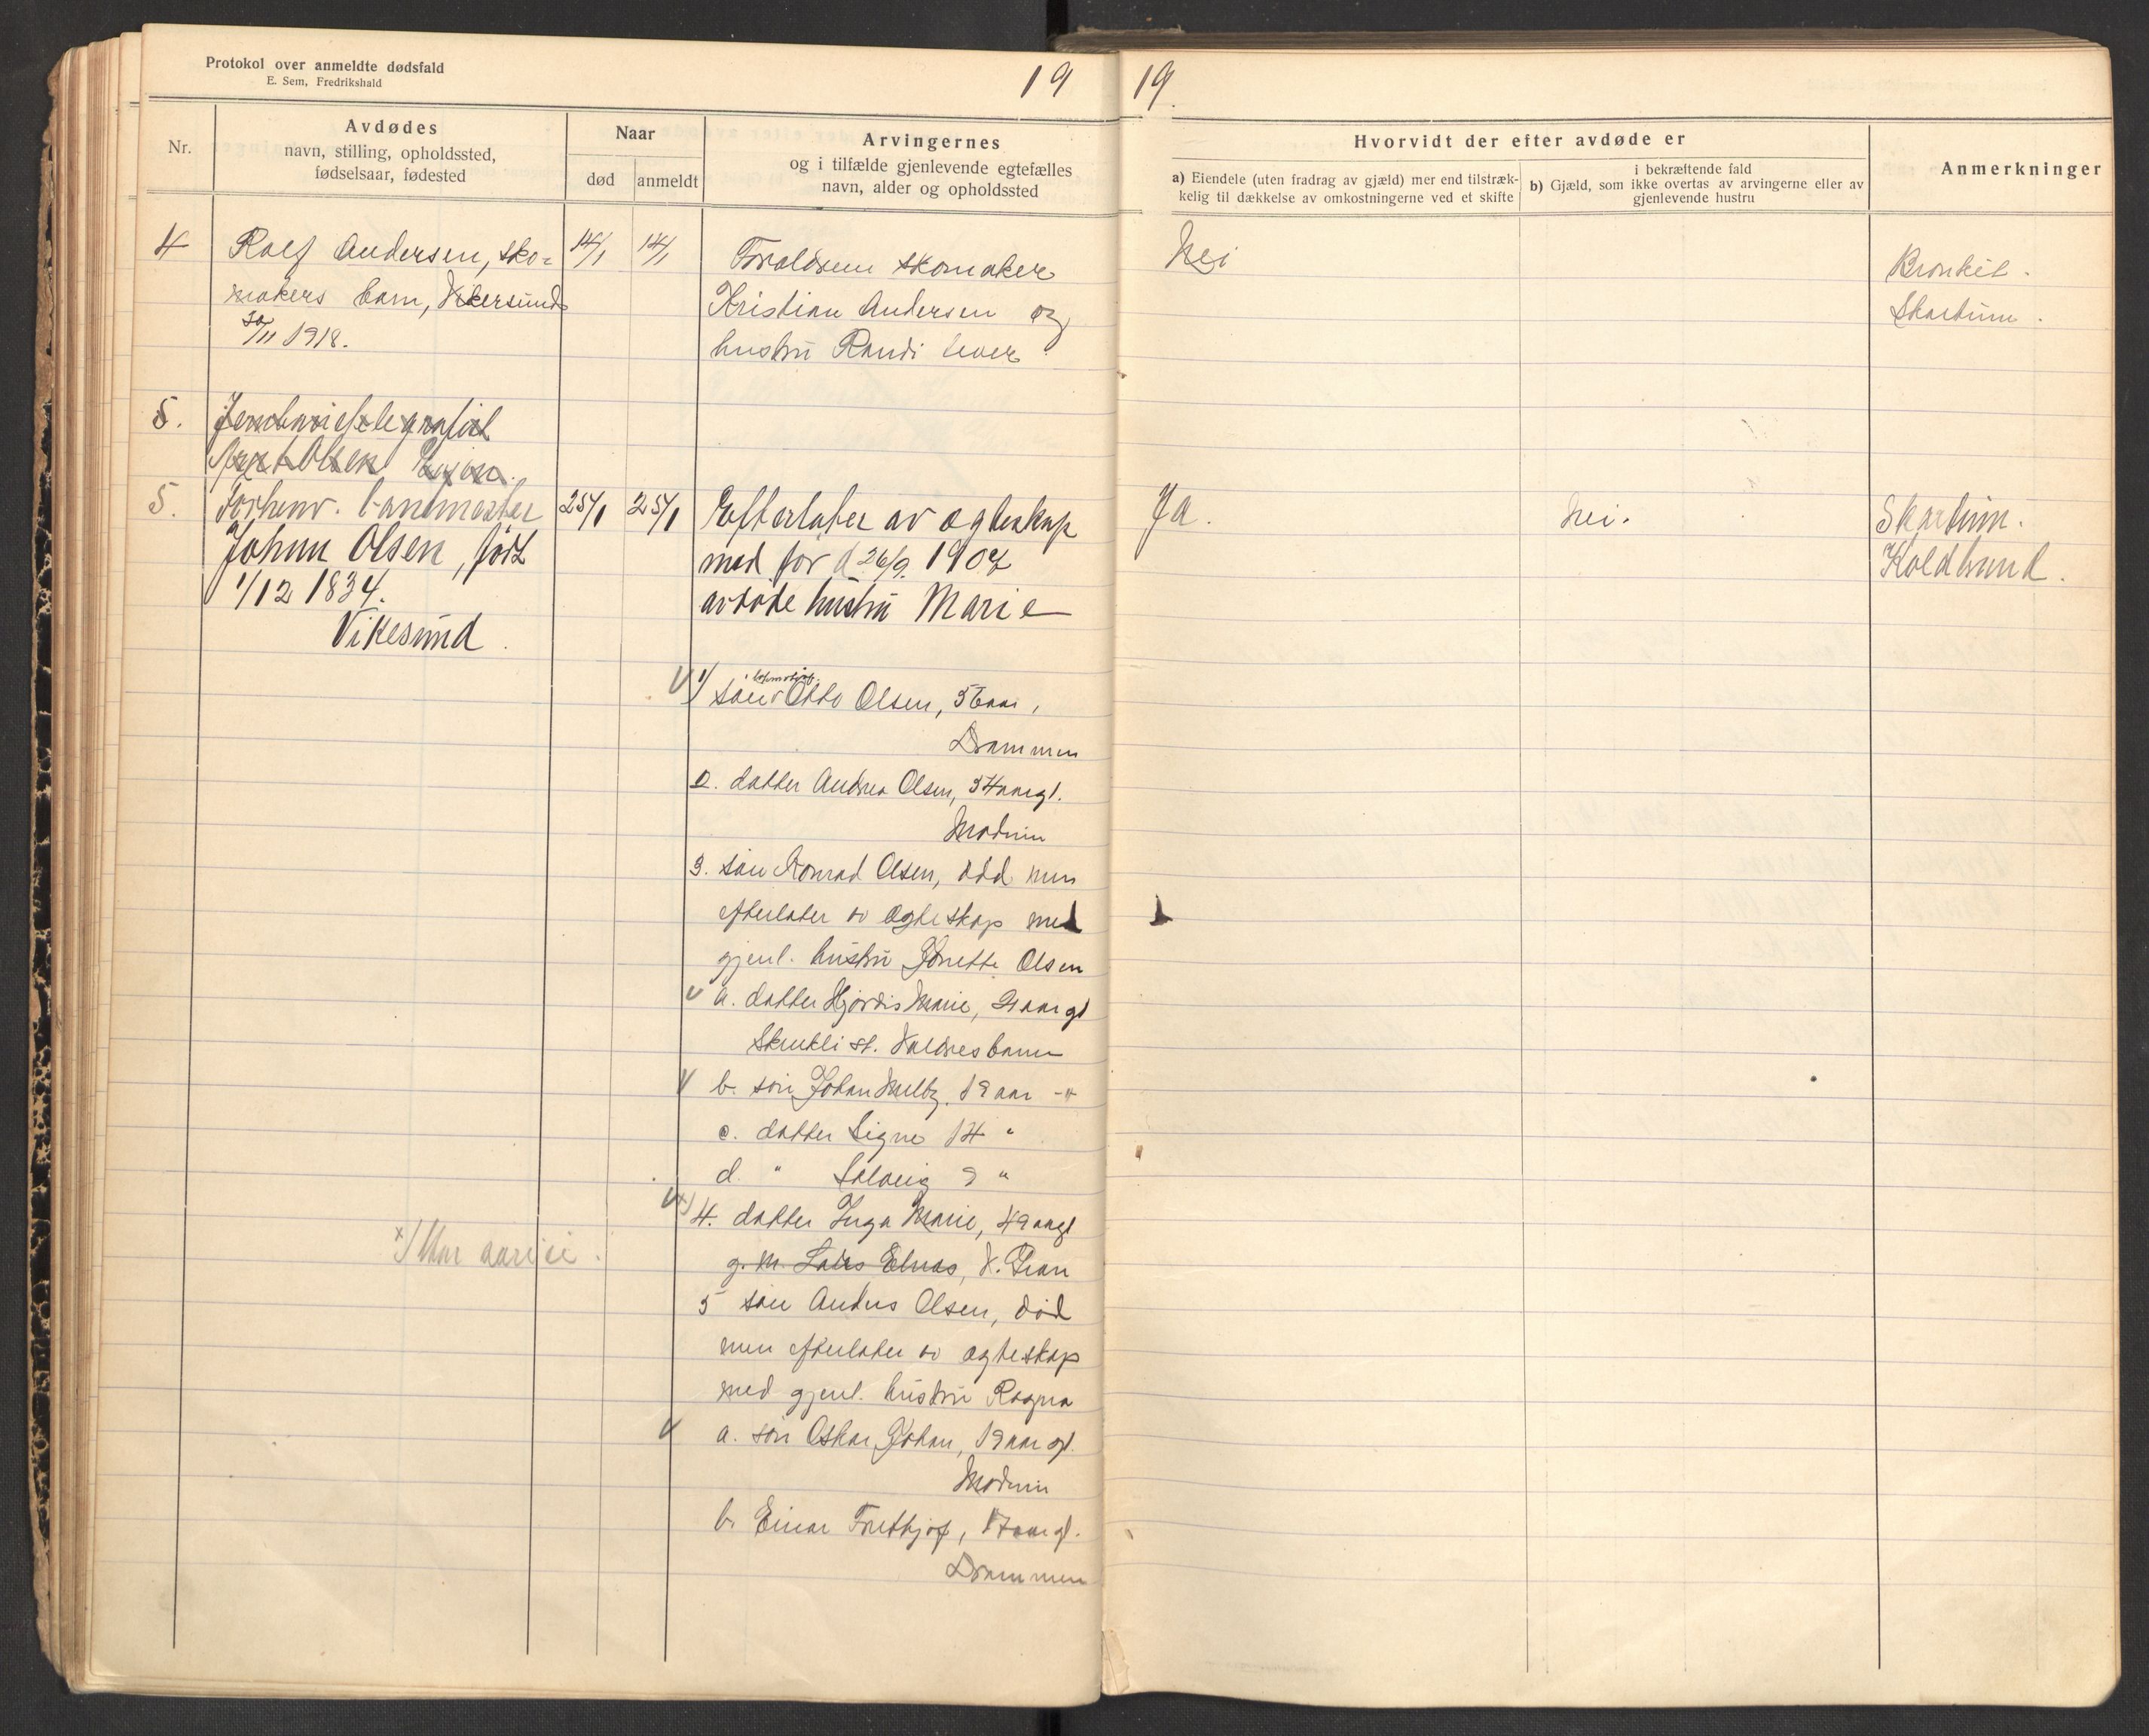 Protokol over anmeldte dødsfald
E. Sem, Fredrikshald
19
19.
Nr.
Avdødes
navn, stilling, opholdssted,
fødselsaar, fødested
Naar
død
anmeldt
Arvingernes
og i tilfælde gjenlevende egtefælles
navn, alder og opholdssted
Hvorvidt der efter avdøde er
a) Eiendele (uten fradrag av gjæld) mer end tilstræk-
kelig til dækkelse av omkostningerne ved et skifte
i bekræftende fald
b) Gjæld, som ikke overtas av arvingerne eller av
gjenlevende hustru
Anmerkninger
4
Rolf Andersen, sko-
makers barn, Vikersund
30/11 1918.
14/1
14/1
Forældrene skomaker
Kristian Andersen og
hustru Randi lever
Nei
Bronkit.
Skartum.
5.
Jernbanetelegrafist
Olsen
5.
Forhenv. banemester
Johan Olsen, født
1/12 1834.
Vikesund.
25/1
25/1
Efterlater av egteskap
med før d. 26/9. 1907
avdøde hustru Marie
Ja.
Nei.
Skartum.
Koldbrand.
1/ søn Otto Olsen, 56 aar,
Drammen
2. datter Andrea Olsen, 34 aar gl.
Modum
3. søn Konrad Olsen, død men
efterlater av egteskap med
gjenl. hustru Olsen
a. datter Hjørdis Marie, 21 aar gl
st. Valdresbanen
b. søn Johan Melby, 19 aar -"-
c. datter Signe 14 "
d. " Solveig 9 "
x) 4. datter Inga Marie, 49 aar gl
g. m. Lars Elnas, V. Gran
5 søn Anders Olsen, død
men efterlater av egteskap
med gjenl. hustru Ragna
a. søn Oskar Johan, 19 aar gl.
Modum
b. Einar Frithjof, 17 aar gl.
Drammen
x)